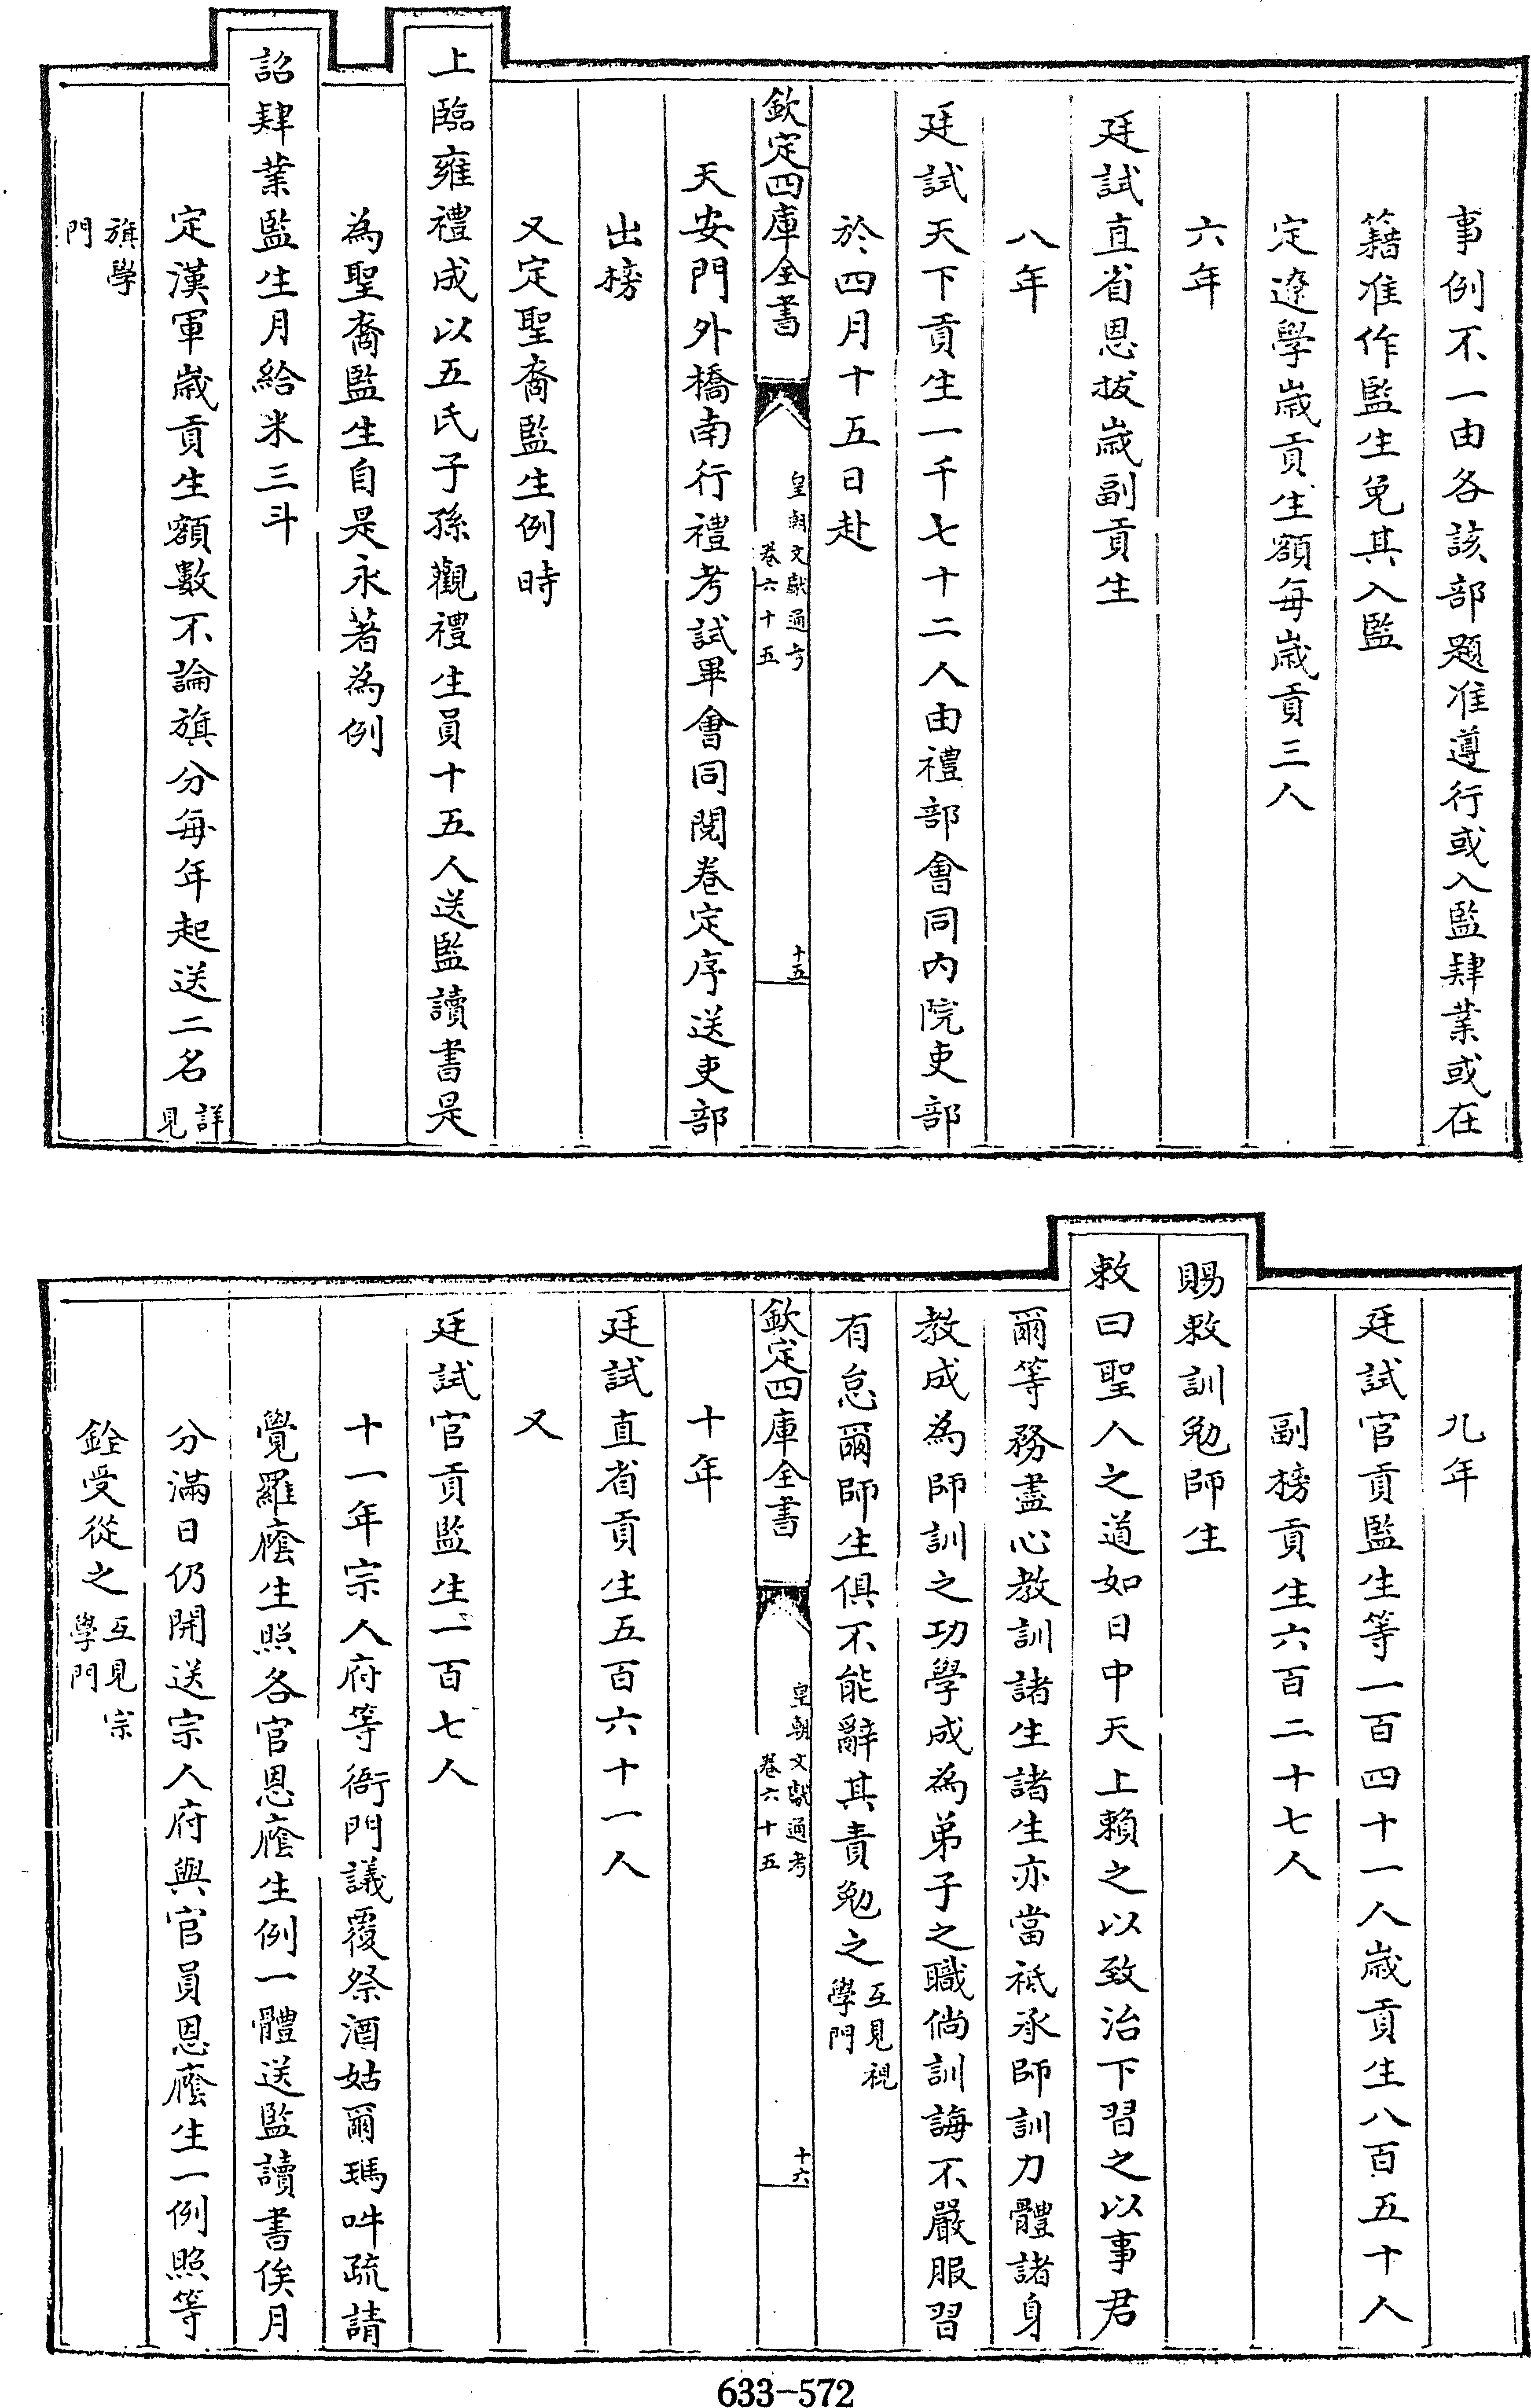 事例不一由各該部題准遵行或入監肄業或在
籍准作監生免其入監
定遼學歲貢生額每歲貢三人
六年
廷試直省恩拔歲副貢生
八年
廷試天下貢生一千七十二人由禮部會同內院吏部
於四月十五日赴
欽定四庫全書
皇朝文獻通考
卷六十五
十五
天安門外橋南行禮考試畢會同閱卷定序送吏部
出榜
又定聖裔監生例時
上臨雍禮成以五氏子孫觀禮生員十五人送監讀書是
為聖裔監生自是永著為例
詔肄業監生月給米三斗
定漢軍歲貢生額數不論旗分每年起送二名詳見
旗學門
九年
廷試官貢監生等一百四十一人歲貢生八百五十人
副榜貢生六百二十七人
賜敕訓勉師生
敕曰聖人之道如日中天上賴之以致治下習之以事君
爾等務盡心教訓諸生諸生亦當祗承師訓力體諸身
教成為師訓之功學成為弟子之職倘訓誨不嚴服習
有怠爾師生俱不能辭其責勉之互見視學門
欽定四庫全書
皇朝文獻通考
卷六十五
十六
十年
廷試直省貢生五百六十一人
又
廷試官貢監生一百七人
十一年宗人府等衙門議覆祭酒姑爾瑪吽疏請
覺羅廕生照各官恩廕生例一體送監讀書俟月
分滿日仍開送宗人府與官員恩廕生一例照等
銓受從之互見宗學門
633-572